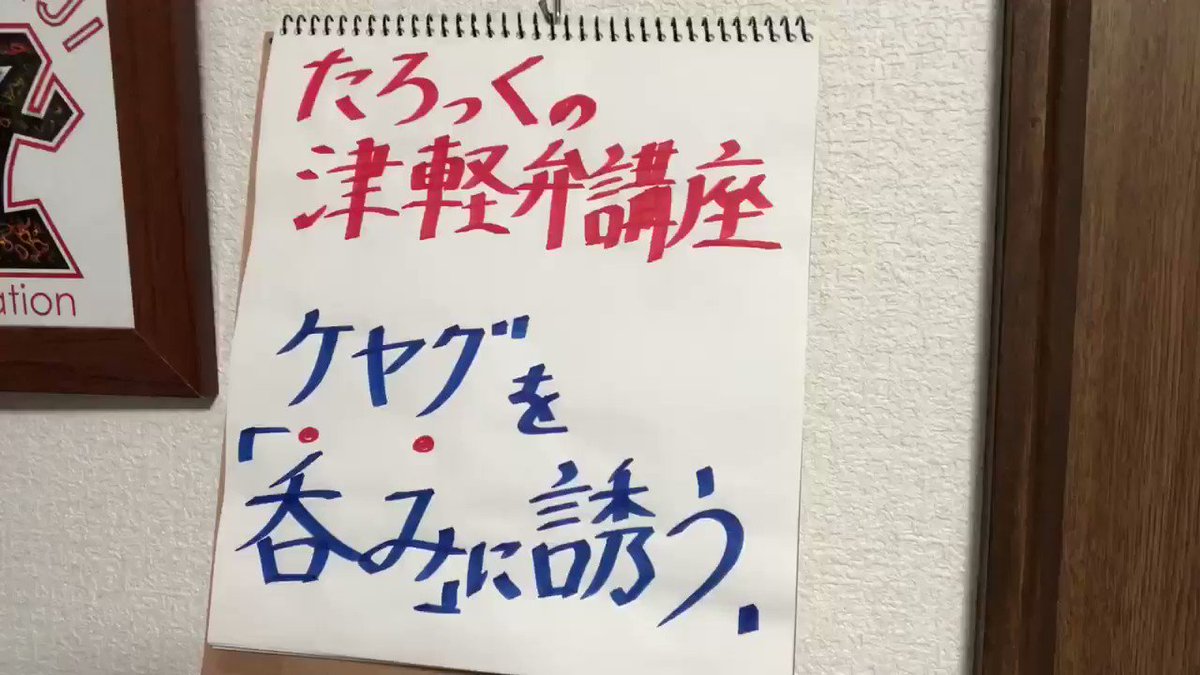 たろっくの
津軽弁講座
ケヤグを
「呑み」に誘う.
ation